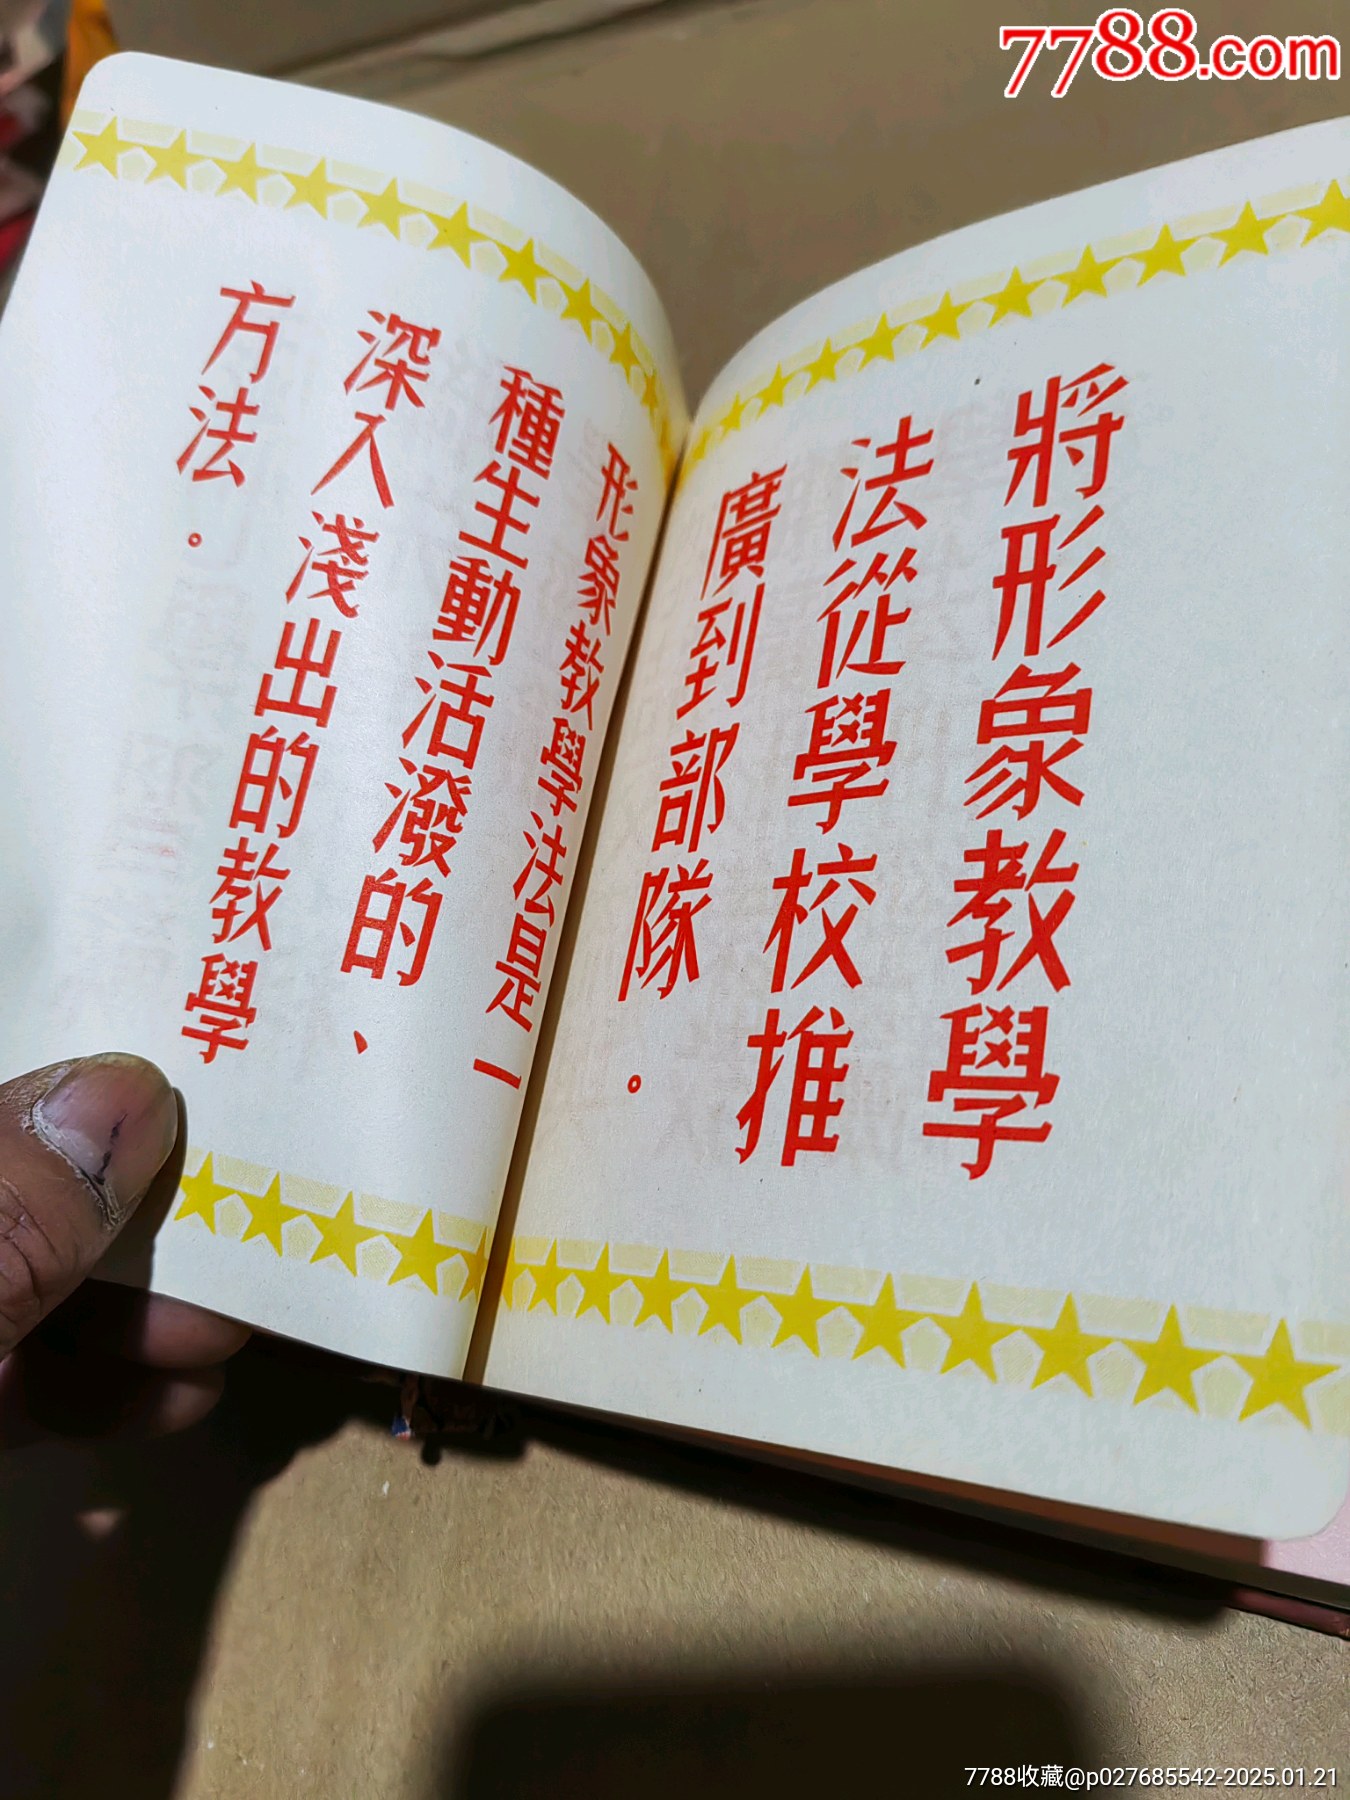 7788.com
將形象教學
法從學校推
廣到部隊。
形象教學法是一
種生動活潑的、
深入淺出的教學
方法。
7788收藏@p027685542-2025.01.21